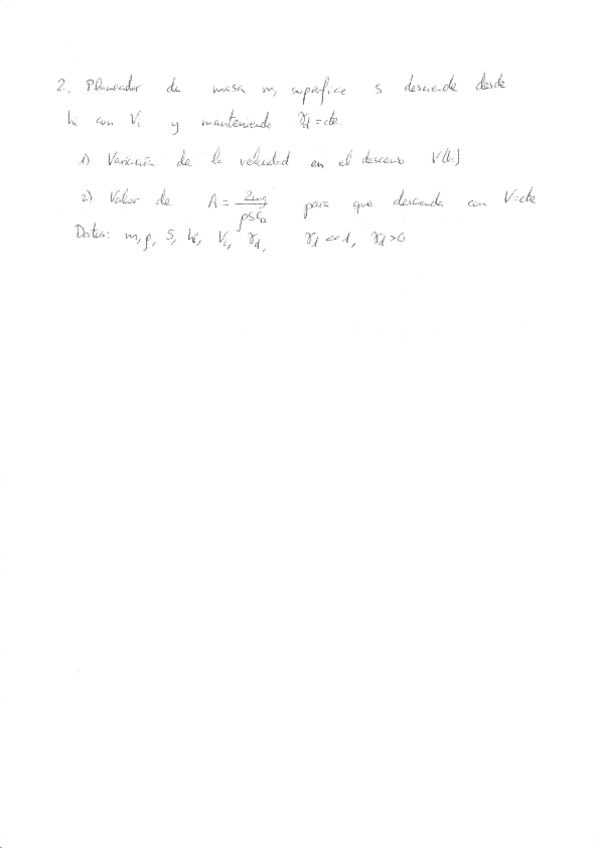 2. Planeador de masa m, superficie S desciende desde
hi con Vi y manteniendo γd = cte.
1) Variación de la velocidad en el descenso V(h)
2) Valor de A = 2mg / ρSCD para que descienda con V=cte
Datos: m, ρ, S, hi, Vi, γd, γd << 1, γd > 0